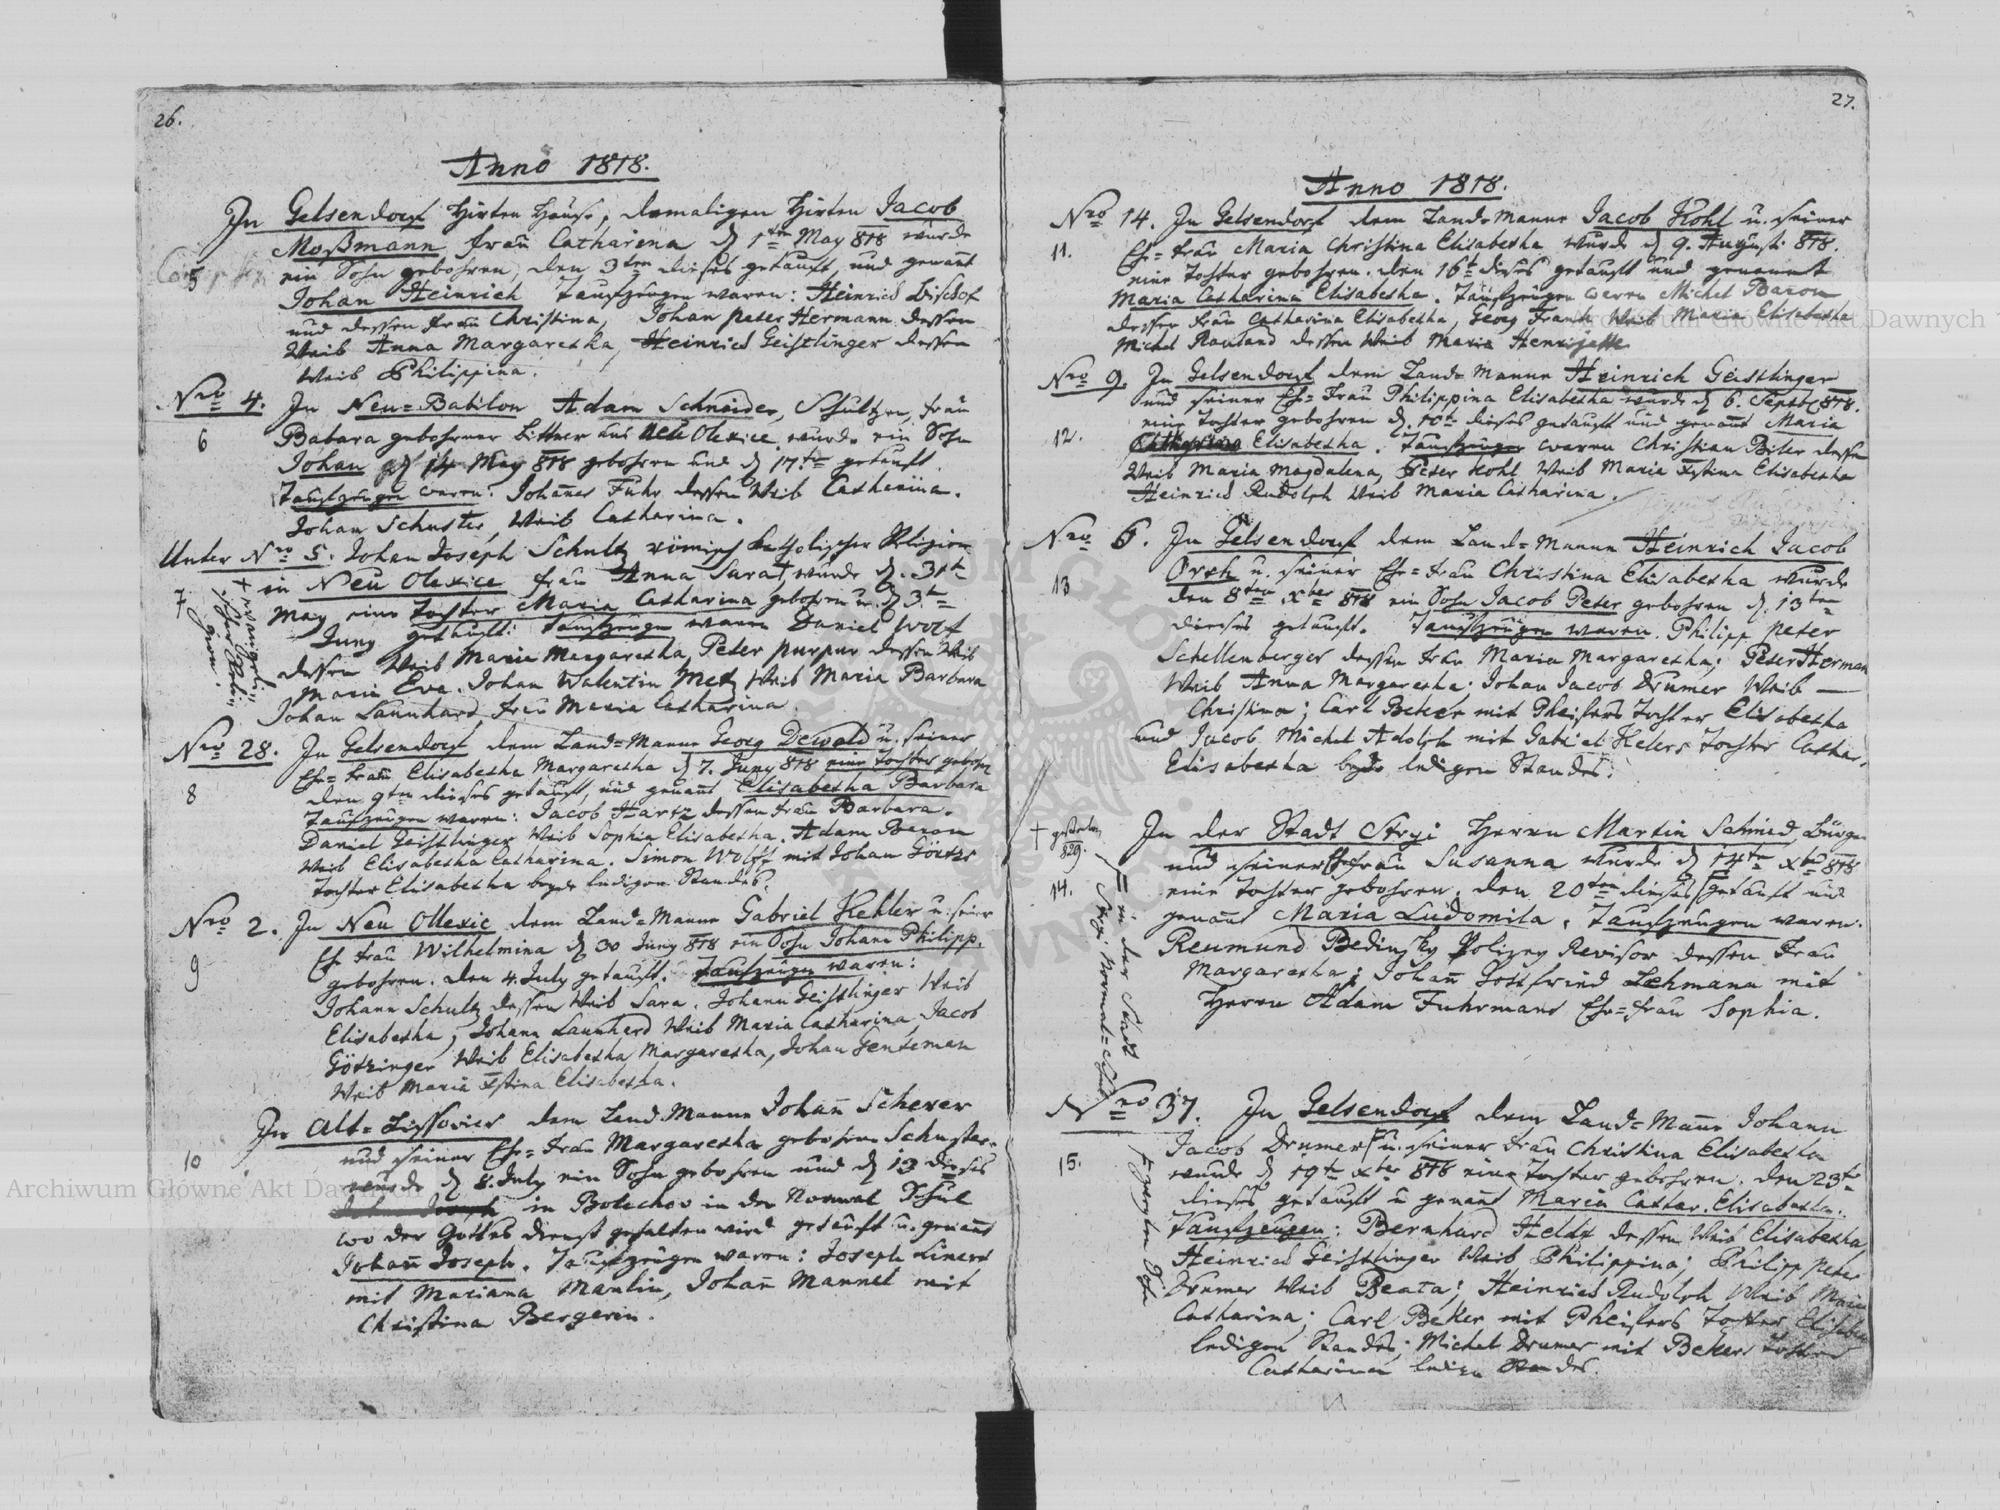 26.
Anno 1818.
In Gelsendorf Hirten Hause, damaligen Hirten Jacob
Moßmann frau Catharina d 1ten May 818 wurde
5
ein Sohn gebohren, den 3ten dieses getauft, und genant
Johan Heinrich Taufzeugen waren: Heinrich Bischof
und dessen frau Christina, Johan peter Hermann dessen
Weib Anna Margaretha, Heinrich Geistlinger dessen
Weib Philippina.
Nro 4. In Neu=Babilon Adam Schneider, Schultzen, frau
6
Babara gebohrner Bittner aus Neu Olexice wurde ein Sohn
Johan d 14 May 818 gebohren und d 17ten getauft.
Taufzeugen waren: Johannes Fuhr dessen Weib Catharina.
Johan Schuster, Weib Catharina.
Unter Nro 5. Johan Joseph Schultz römisch katholischer Religion
in Neu Olexice frau Anna Sara wurde d. 31t
7
May eine Tochter Maria Catharina gebohren u. d 3ten
Juny getauft: Taufzeugen waren Daniel Wolf
dessen Weib Maria Margaretha, Peter purpur dessen Weib
Maria Eva. Johan Valentin Metz Weib Maria Barbara
Johan Launhard frau Maria Catharina.
Nro 28. In Gelsendorf dem Land=Manne Georg Dewald u. seiner
Ehe=frau Elisabetha Margaretha d 7. Juny 818 eine Tochter gebohr
8
den 9ten dieses getauft, und genant Elisabetha Barbara
Taufzeugen waren: Jacob Hartz dessen frau Barbara.
Daniel Geistlinger Weib Sophia Elisabetha. Adam Baron
Weib Elisabetha Catharina. Simon Wolff mit Johan Görtz
Tochter Elisabetha beyde ledigen Standes.
Nro 2. In Neu Ollexic dem Land=Manne Gabriel Kehler u. seiner
Eh frau Wilhelmina d 30 Juny 818 ein Sohn Johann Philipp.
9
gebohren. den 4. July getauft. Taufzeugen waren:
Johann Schultz dessen Weib Sara. Johann Geistlinger Weib
Elisabetha, Johann Launhard Weib Maria Catharina, Jacob
Götzinger Weib Elisabetha Margaretha, Johan Genteman
Weib Maria Xstina Elisabetha.
In Alt=Lissovice dem Land Manne Johan Scherer
und seiner Ehe=frau Margaretha gebohrne Schuster.
10
wurde d 8. July ein Sohn gebohren und d 13 dieses
in Bolechov in der Normal Schul
wo der Gottes dienst gehalten wird getauft u. genant
Johann Joseph. Taufzeugen waren: Joseph Linert
mit Mariana Manlin, Johann Mannel mit
Christina Bergerin.
27.
Anno 1818.
Nro 14. In Gelsendorf dem Land=Manne Jacob Kohl u. seiner
11.
Ehe=frau Maria Christina Elisabetha wurde d 9. Augusti 818.
eine Tochter gebohren. den 16t dieses getauft und genannt
Maria Catharina Elisabetha. Taufzeugen waren Michel Baron
dessen frau Catharina Elisabetha, Georg Frank Weib Maria Elisabetha
Michel Rauland dessen Weib Maria Henrijette
Nro 9. In Gelsendorf dem Land=Manne Heinrich Geistlinger
und seiner Ehe=Frau Philippina Elisabetha wurde d 6. Septbr 818.
eine Tochter gebohren d. 10ten dieses getauft und genant Maria
12.
Catharina Elisabetha. Taufzeugen waren Christian Biter dessen
Weib Maria Magdalena, Peter Kohl Weib Maria Xstina Elisabetha
Heinrich Rudolph Weib Maria Catharina.
Nro 6. In Gelsendorf dem Land=Manne Heinrich Jacob
13
Orth u. seiner Ehe=frau Christina Elisabetha wurde
den 8ten Xber 818 ein Sohn Jacob Peter gebohren d. 13ten
dieses getauft. Taufzeugen waren. Philipp peter
Schellenberger dessen frau Maria Margaretha; Peter Herman
Weib Anna Margaretha; Johan Jacob Drumer Weib —
Christina; Carl Beker mit Pheifers Tochter Elisabetha
und Jacob Michel Adolph mit Gabriel Kelers Tochter Cathar.
Elisabetha beyde ledigen Standes.
† gestorben
829
In der Stadt Stryi Herrn Martin Schmied, Bürger
und seiner Ehefrau Susanna wurde d 14ten Xber 818
14.
eine Tochter gebohren. den 20ten dieses getauft und
genant Maria Ludomila. Taufzeugen waren.
Reumund Bedinsky Polizey Revisor dessen Frau
Margaretha; Johann Gottfried Lehmann mit
Herrn Adam Fuhrmans Ehe=frau Sophia.
in der Stadt Stryi Normal=Schul
Nro 37. In Gelsendorf dem Land=Mann Johann
Jacob Drumer u. seiner frau Christina Elisabetha
15.
wurde d 19ten Xber 818 eine Tochter gebohren. den 23ten
dieses getauft u genant Maria Cathar. Elisabetha.
Taufzeugen: Bernhard Heldt dessen Weib Elisabetha,
Heinrich Geistlinger Weib Philippina; Philipp peter
Drumer Weib Beata; Heinrich Rudolph Weib Maria
Catharina; Carl Beker mit Pheifers Tochter Elisabetha
ledigen Standes; Michel Drumer mit Bekers Tochter
Catharina ledigen Standes.
Archiwum Główne Akt Dawnych
Archiwum Główne Akt Dawnych